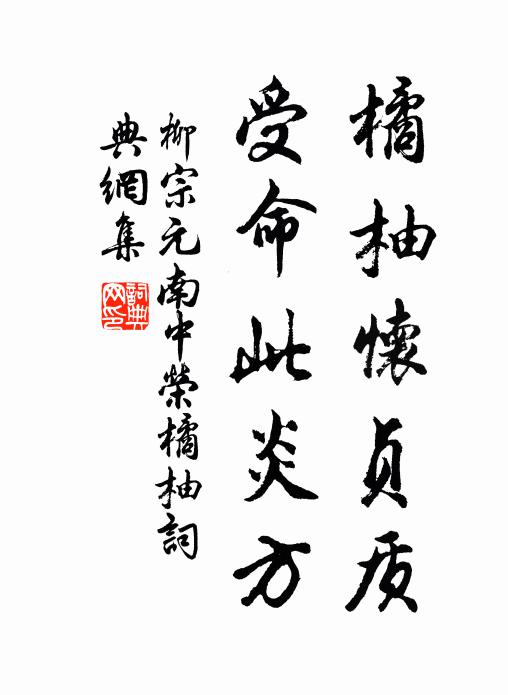 橘柚懷贞质
受命此炎方
柳宗元南中榮橘柚詞
典網集
詞典
网印